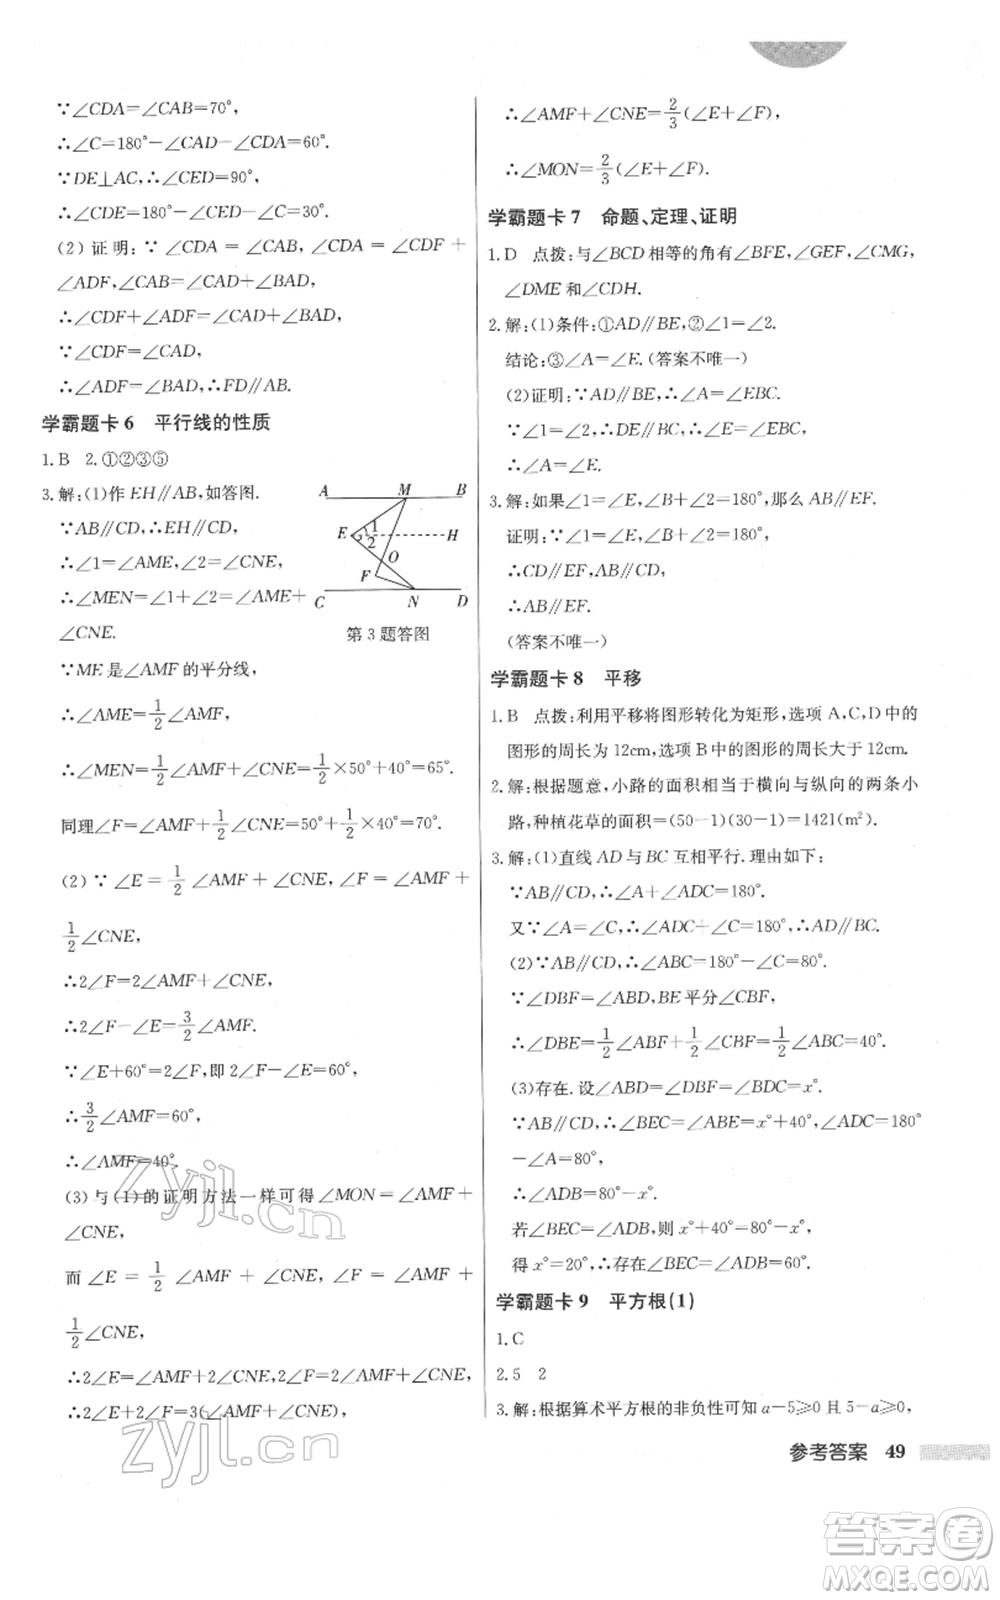 ∵∠CDA=∠CAB=70°,
∴∠C=180°-∠CAD-∠CDA=60°.
∵DE⊥AC,∴∠CED=90°,
∴∠CDE=180°-∠CED-∠C=30°.
(2)证明:∵∠CDA=∠CAB,∠CDA=∠CDF+
∠ADF,∠CAB=∠CAD+∠BAD,
∴∠CDF+∠ADF=∠CAD+∠BAD.
∵∠CDF=∠CAD,
∴∠ADF=∠BAD,∴FD∥AB.
学霸题卡6 平行线的性质
1.B 2.①②③⑤
3.解:(1)作EH∥AB,如答图.
∵AB∥CD,∴EH∥CD,
∴∠1=∠AME,∠2=∠CNE.
∴∠MEN=∠1+∠2=∠AME+
∠CNE.
A M B
E 1 2 H
O
F
C N D
第3题答图
∵ME是∠AMF的平分线,
∴∠AME=1/2∠AMF,
∴∠MEN=1/2∠AMF+∠CNE=1/2×50°+40°=65°.
同理∠F=∠AMF+1/2∠CNE=50°+1/2×40°=70°.
(2)∵∠E=1/2∠AMF+∠CNE,∠F=∠AMF+
1/2∠CNE,
∴2∠F=2∠AMF+∠CNE,
∴2∠F-∠E=3/2∠AMF.
∵∠E+60°=2∠F,即2∠F-∠E=60°,
∴3/2∠AMF=60°,
∴∠AMF=40°.
(3)与(1)的证明方法一样可得∠MON=∠AMF+
∠CNE,
而∠E=1/2∠AMF+∠CNE,∠F=∠AMF+
1/2∠CNE,
∴2∠E=∠AMF+2∠CNE,2∠F=2∠AMF+∠CNE,
∴2∠E+2∠F=3(∠AMF+∠CNE),
∴∠AMF+∠CNE=2/3(∠E+∠F),
∴∠MON=2/3(∠E+∠F).
学霸题卡7 命题、定理、证明
1.D 点拨:与∠BCD相等的角有∠BFE,∠GEF,∠CMG,
∠DME和∠CDH.
2.解:(1)条件:①AD∥BE,②∠1=∠2.
结论:③∠A=∠E.(答案不唯一)
(2)证明:∵AD∥BE,∴∠A=∠EBC.
∵∠1=∠2,∴DE∥BC,∴∠E=∠EBC,
∴∠A=∠E.
3.解:如果∠1=∠E,∠B+∠2=180°,那么AB∥EF.
证明:∵∠1=∠E,∠B+∠2=180°,
∴CD∥EF,AB∥CD,
∴AB∥EF.
(答案不唯一)
学霸题卡8 平移
1.B 点拨:利用平移将图形转化为矩形,选项A,C,D中的
图形的周长为12cm,选项B中的图形的周长大于12cm.
2.解:根据题意,小路的面积相当于横向与纵向的两条小
路,种植花草的面积=(50-1)(30-1)=1421(m²).
3.解:(1)直线AD与BC互相平行.理由如下:
∵AB∥CD,∴∠A+∠ADC=180°.
又∵∠A=∠C,∴∠ADC+∠C=180°,∴AD∥BC.
(2)∵AB∥CD,∴∠ABC=180°-∠C=80°.
∵∠DBF=∠ABD,BE平分∠CBF,
∴∠DBE=1/2∠ABF+1/2∠CBF=1/2∠ABC=40°.
(3)存在.设∠ABD=∠DBF=∠BDC=x°.
∵AB∥CD,∴∠BEC=∠ABE=x°+40°,∠ADC=180°
-∠A=80°,
∴∠ADB=80°-x°.
若∠BEC=∠ADB,则x°+40°=80°-x°,
得x°=20°,∴存在∠BEC=∠ADB=60°.
学霸题卡9 平方根(1)
1.C
2.5 2
3.解:根据算术平方根的非负性可知a-5≥0且5-a≥0,
参考答案 49
zyjl.cn
zyjl.cn
答案卷
MXQE.COM